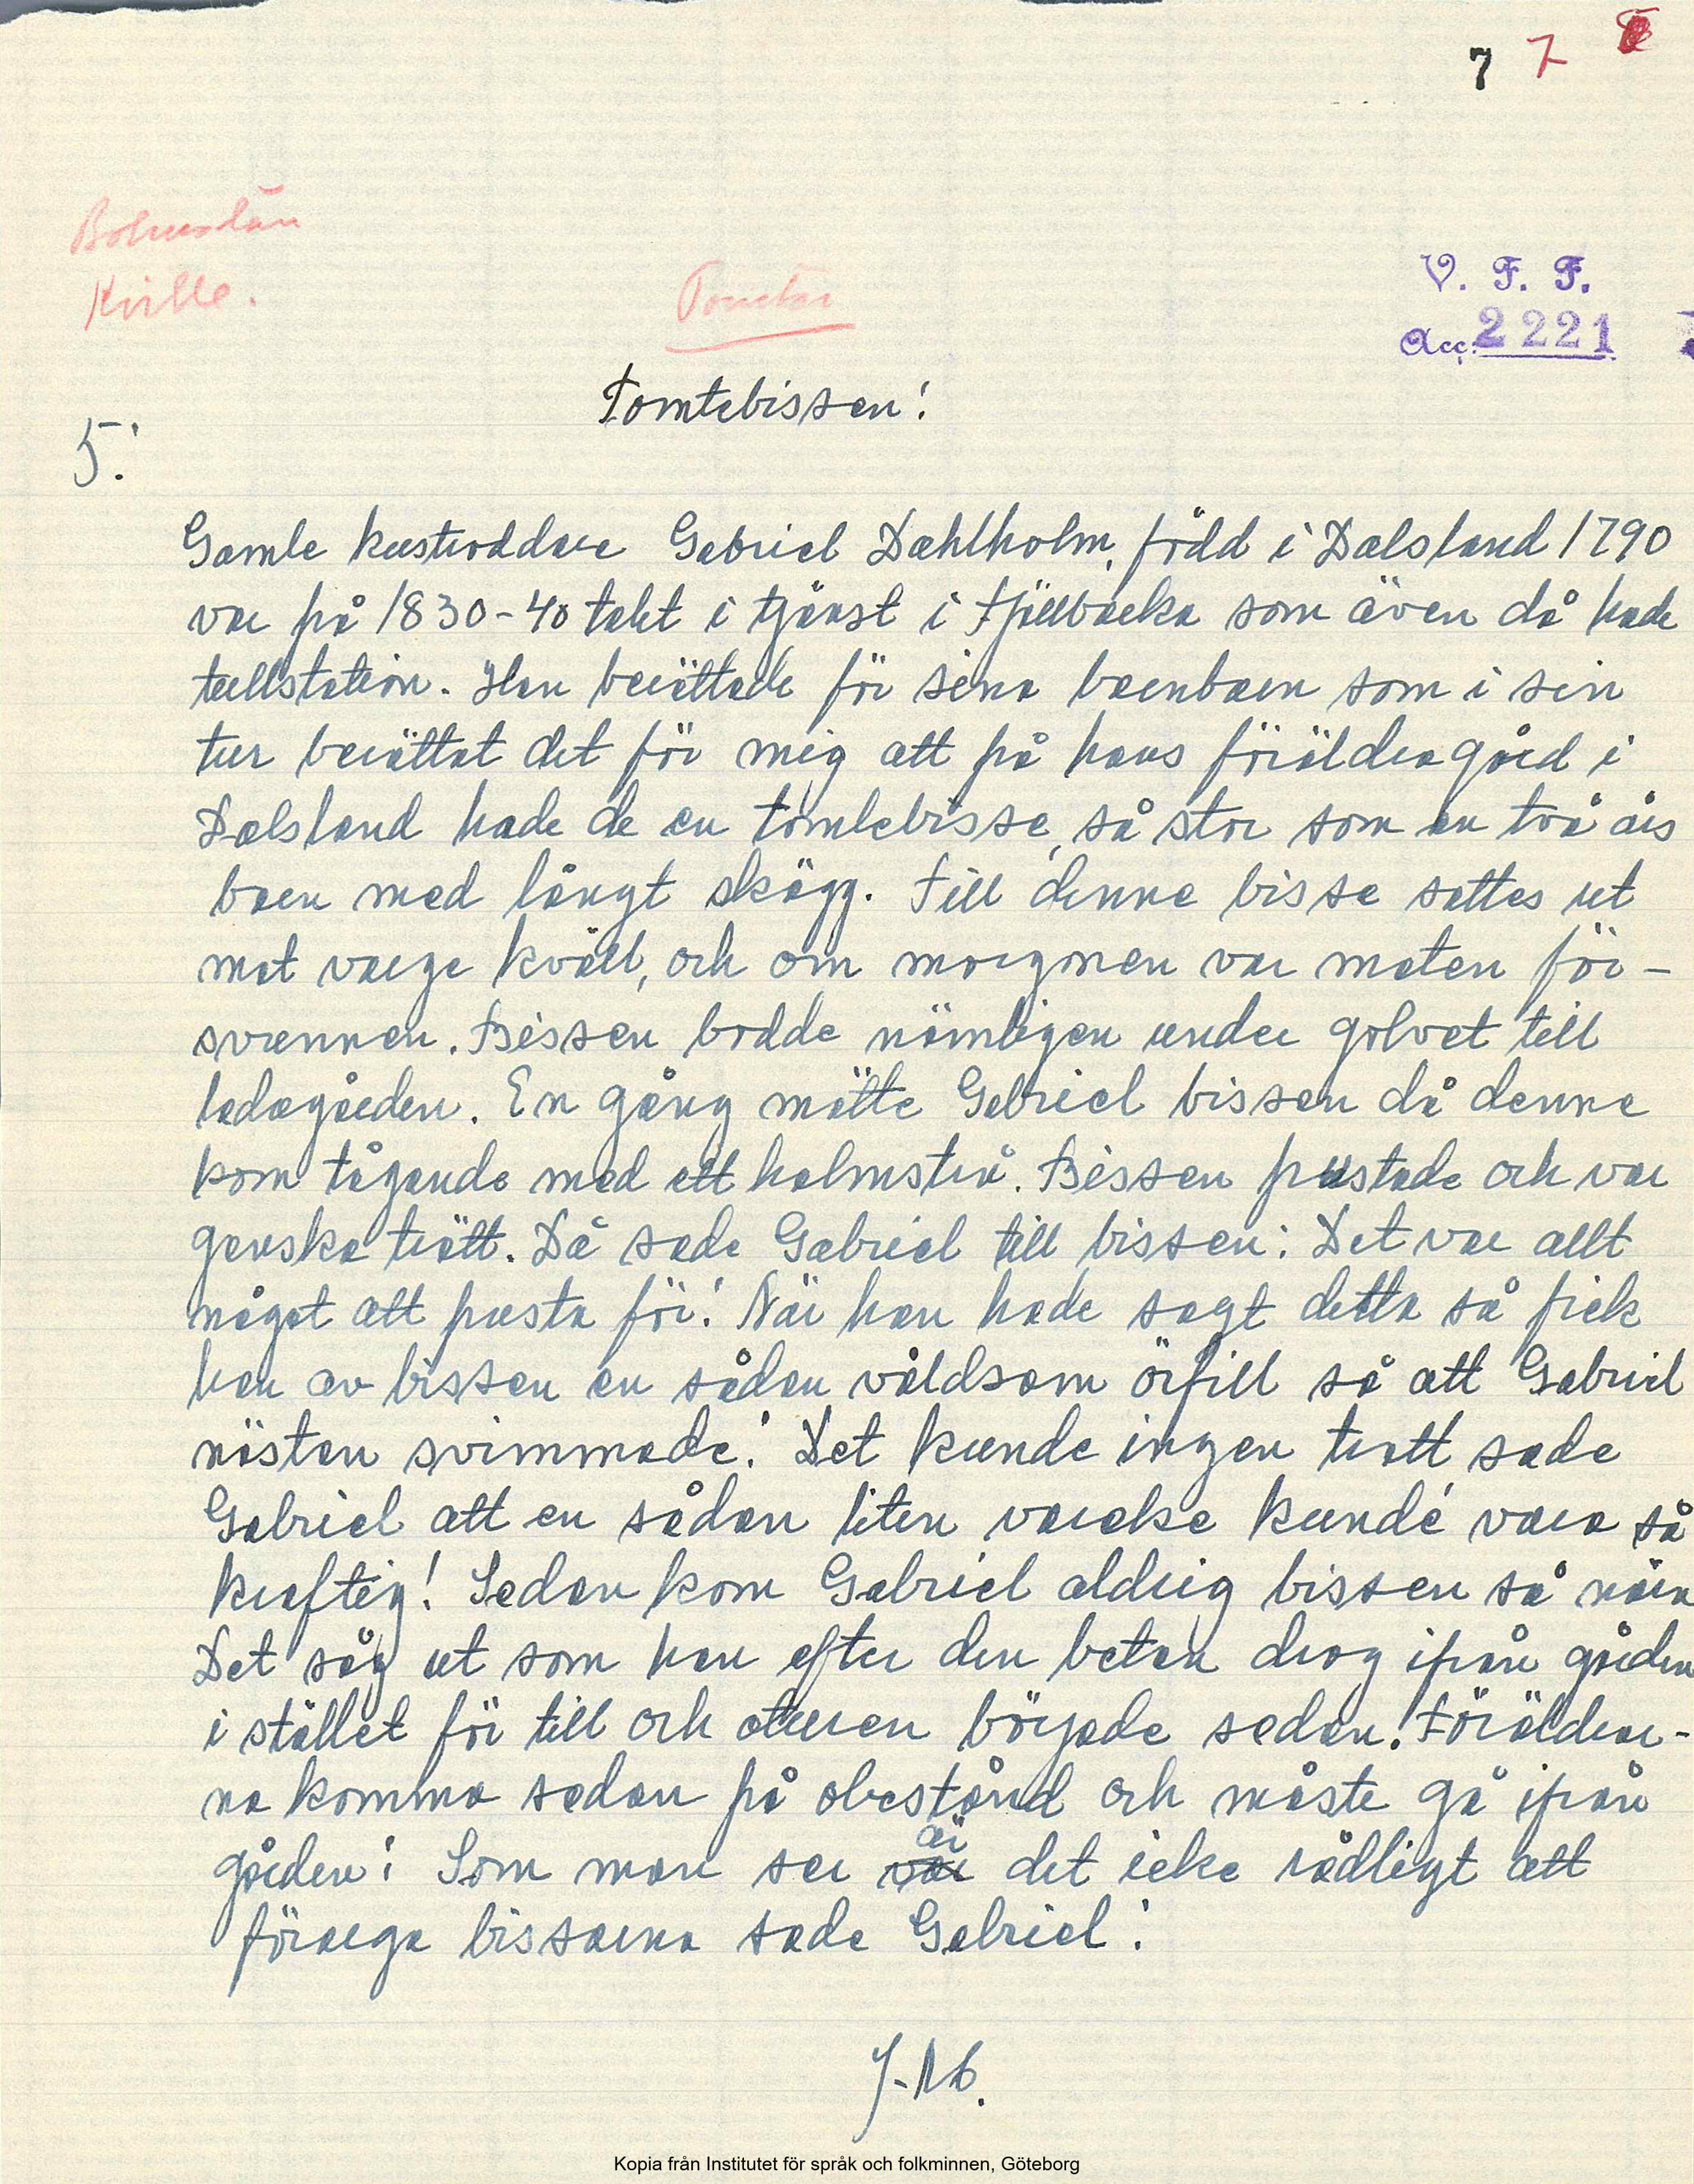 7 7
Bohuslän
Kville.
Tomtar
V. F. F.
Acc. 2221
Tomtebissen!
5.
Gamle kustroddare Gabriel Dahlholm, född i Dalsland 1790
var på 1830-40 talet i tjänst i Fjällbacka som även då hade
tullstation. Han berättade för sina barnbarn som i sin
tur berättat det för mig att på hans föräldragård i
Dalsland hade de en tomtebisse, så stor som en två års
barn med långt skägg. Till denne bisse sattes ut
mat varge kväll, och om morgnen var maten för-
svunnen. Bissen bodde nämligen under golvet till
ladagården. En gång mötte Gabriel bissen då denne
kom tågande med ett halmstrå. Bissen pustade och var
ganska trött. Då sade Gabriel till bissen: Det var allt
något att pusta för! När han hade sagt detta så fick
han av bissen en sådan våldsam örfill så att Gabriel
nästan svimmade! Det kunde ingen trott sade
Gabriel att en sådan liten varelse kunde vara så
kraftig! Sedan kom Gabriel aldrig bissen så nära
Det såg ut som han efter den betan drog ifrån gården
i stället för till och oturen började sedan! Föräldrar-
na komma sedan på obestånd och måste gå ifrån
gården! Som man ser var är det icke rådligt att
förarga bissarna sade Gabriel!
Kopia från Institutet för språk och folkminnen, Göteborg